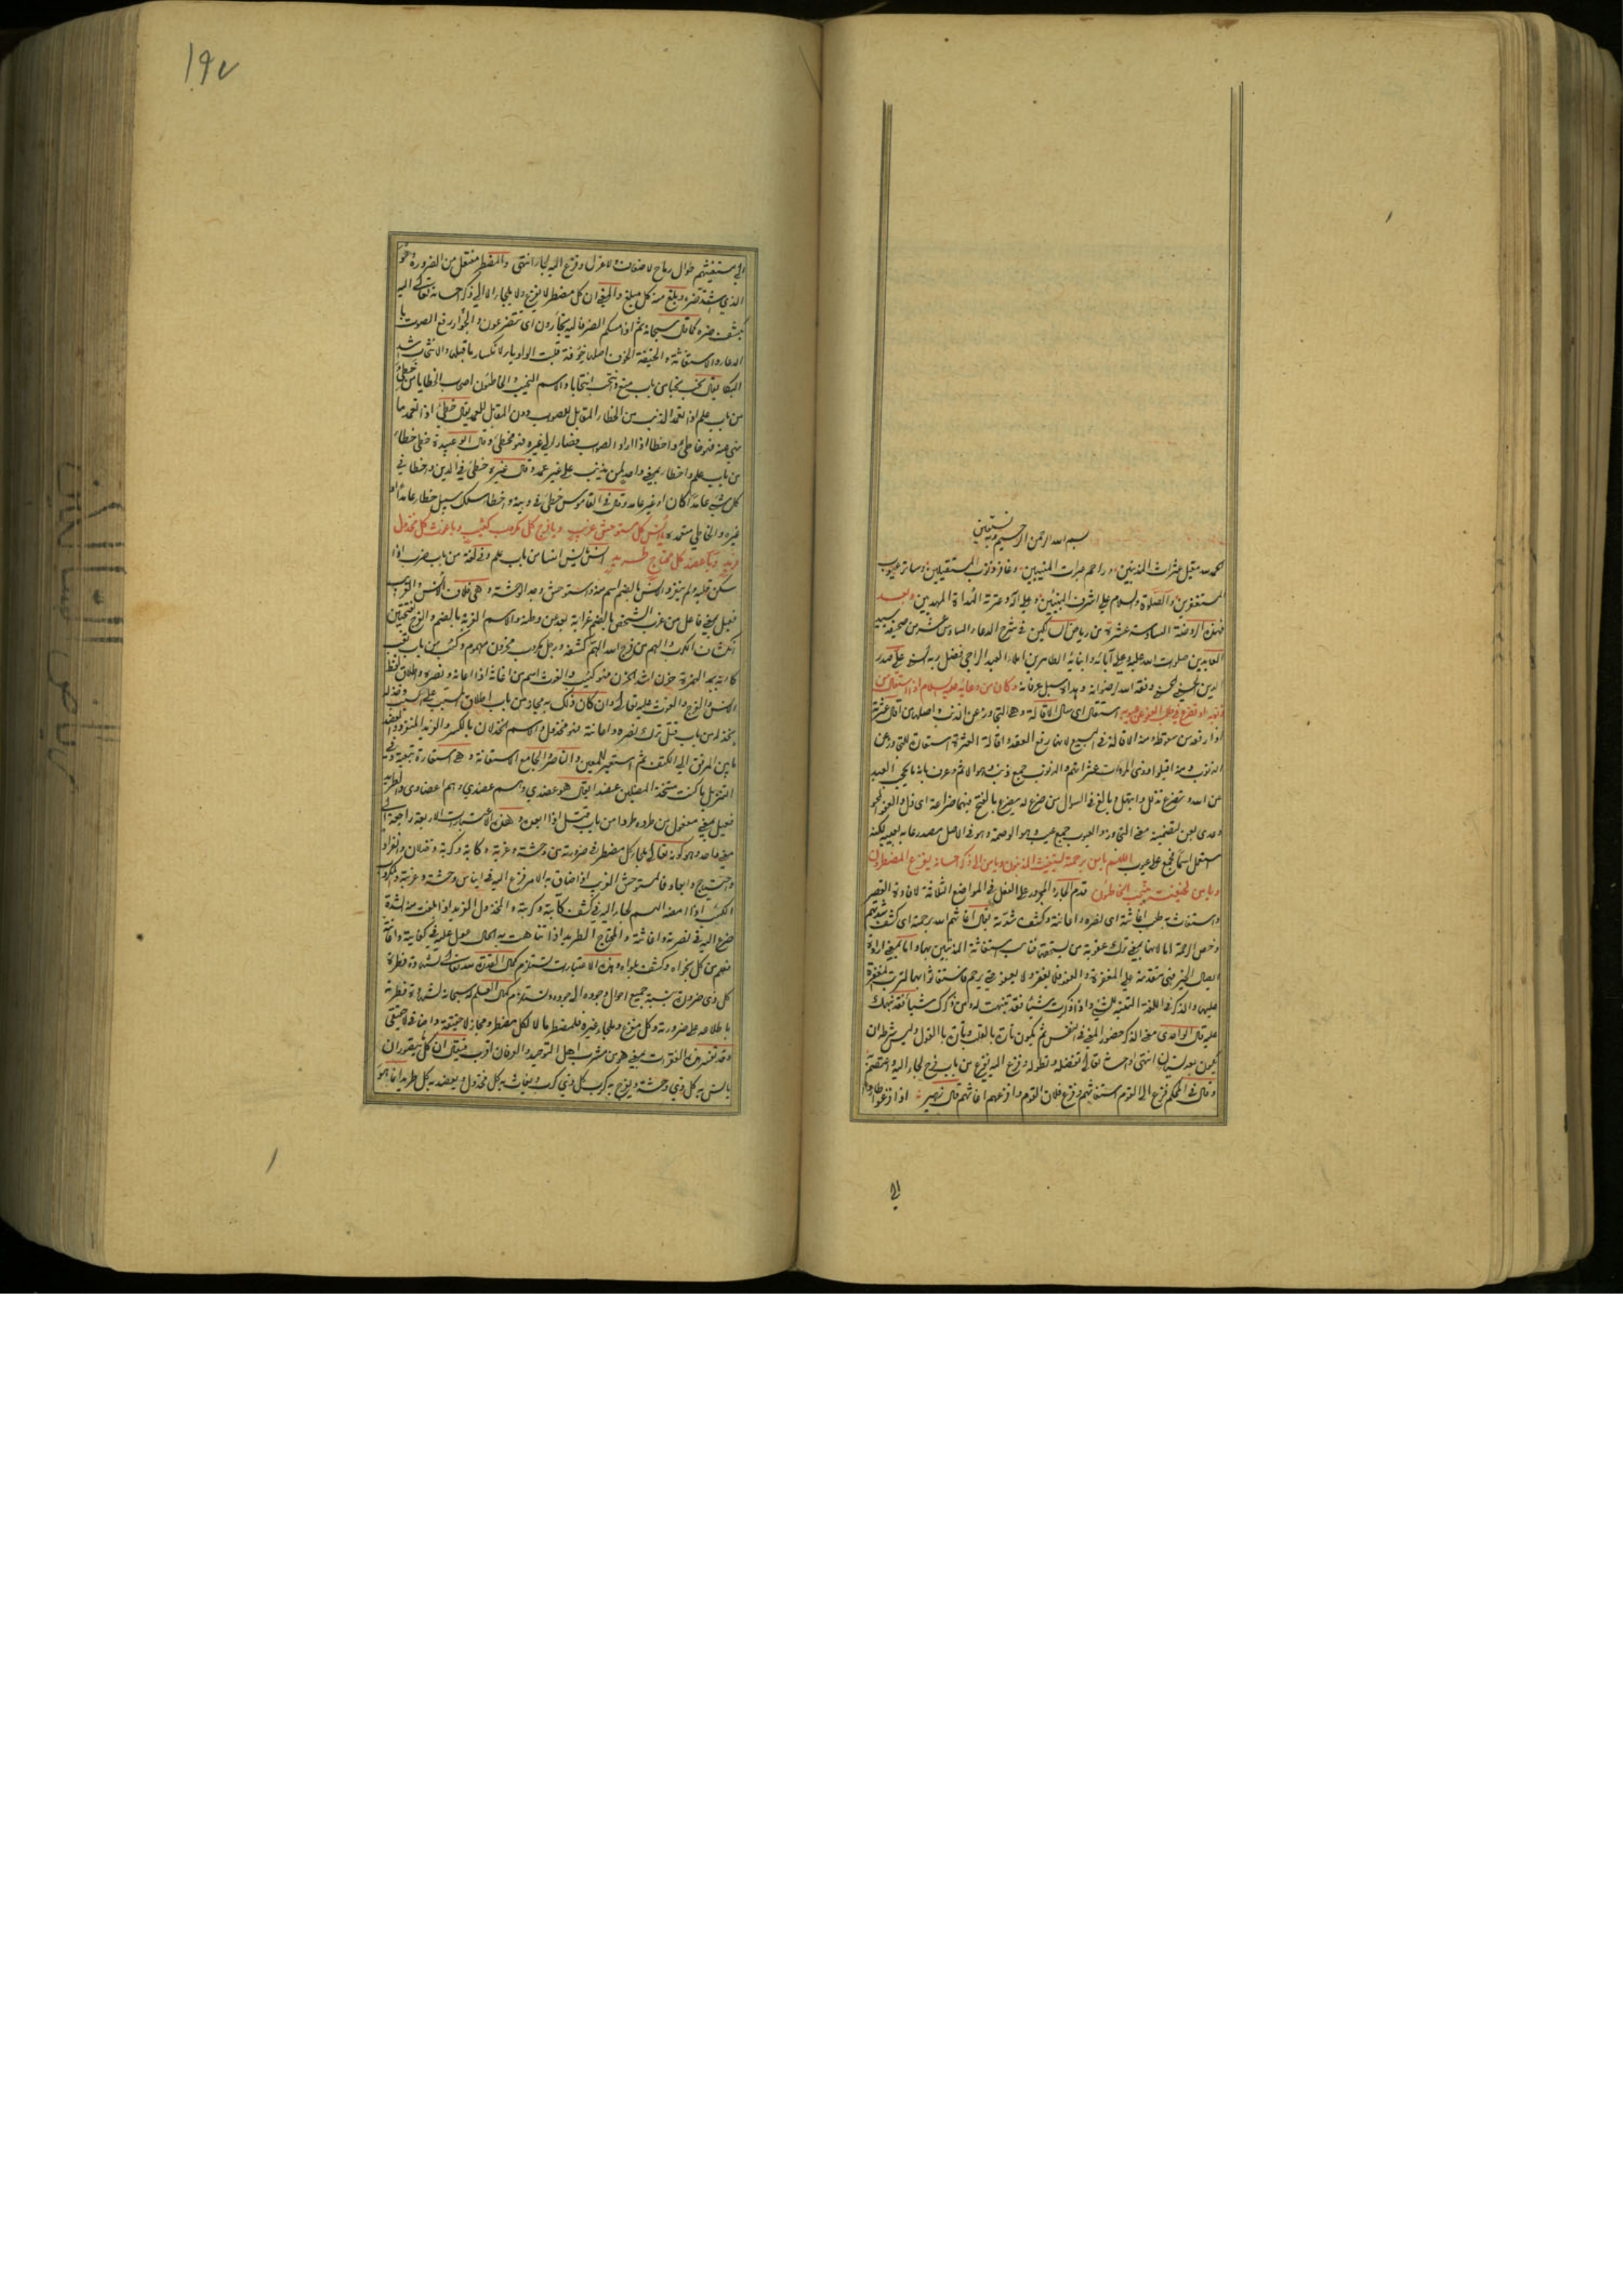 بسم الله الرحمن الرحيم وبه نستعين
الحمد لله مقيل عثرات المذنبين وراحم عبرات المنيبين وغافر ذنوب المستقيلين وساتر عيوب
المستغفرين والصلاة والسلام على اشرف النبيين وعلى آله وعترته الهداة المهديين وبعد
فهذه الروضة السادسة عشرة من رياض السالكين في شرح الدعاء السادس عشر من صحيفة سيد
العابدين صلوات الله عليه وعلى آبائه وابنائه الطاهرين املاء العبد الراجي فضل ربه السني علي صدر
الدين الحسيني الحسني وفقه الله لرضوانه وهداه سبل عرفانه وكان من دعائه عليه السلام اذا استقال من
ذنوبه او تضرع في طلب العفو عن عيوبه استقال اي سال الاقالة وهي التجاوز عن الذنب واصلها من اقال عثرته
اذا رفعه من سقوطه ومنه الاقالة في البيع لانها رفع العقد
الذنوب ومنه اقيلوا ذوي المروات عثراتهم والذنوب جمع ذنب وهو الاثم
من الله وتضرع تذلل وابتهل وبالغ في السؤال من ضرع له يضرع بالفتح فيهما ضراعة اي ذل والعفو المحو
وعدى بعن لتضمينه معنى التجاوز والعيوب جمع عيب وهو الوصمة وهو في الاصل مصدر عابه يعيبه لكنه
استعمل اسما فجمع على عيوب اللهم يا من برحمته يستغيث المذنبون ويا من الى ذكر احسانه يفزع المضطرون
ويا من لخيفته ينتحب الخاطئون قدم الجار والمجرور على الفعل في المواضع الثلاثة لافادة القصر
واستغاث به طلب اغاثته اي نصره واعانته وكشف شدته يقال اغاثهم الله برحمته اي كشف شدتهم
وخص الرحمة اما لانها بمعنى ترك عقوبة من يستحقها فناسب استغاثة المذنبين بها واما بمعنى ارادة
ايصال الخير فهي متقدمة على المغفرة والعفو فلا يغفر ولا يعفو حتى يرحم فاستغاثوا بها لترتب المغفرة
عليها والذكر في اللغة التنبه للشيء واذا ذكرت شيئا فقد تنبهت له ومن ذكرك شيئا فقد نبهك
عليه قال الواحدي معنى الذكر حضور المعنى في النفس ثم يكون تارة بالقلب وتارة بالقول وليس شرطه ان
يكون بعد نسيان انتهى واحسانه تعالى تفضله وتطوله وفزع اليه يفزع من باب فرح لجا اليه واعتصم
وقال في المحكم فزع الى القوم استغاثهم وفزع فلان القوم وافزعهم اغاثهم قال زهير اذا فزعوا طاروا
الى
١٩٧
الى مستغيثهم طوال رماح لا ضعاف ولا عزل وفزع اليه لجا انتهى والمضطر مفتعل من الضرورة وهو
الذي اشتد ضره وبلغ منه كل مبلغ والمعنى ان كل مضطر لا يفزع ولا يلجا الا الى ذكر احسانه تعالى اليه
بكشف ضره كما قال سبحانه ثم اذا مسكم الضر فاليه تجأرون اي تتضرعون والجؤار رفع الصوت با
الدعاء والاستغاثة والخيفة الخوف اصلها خوفة قلبت الواو ياء لانكسار ما قبلها والانتحاب شدة
البكاء يقال نحب نحبا من باب منع وانتحب انتحابا والاسم النحيب والخاطئون اصحاب الخطايا من خطئ
من باب علم اذا تعمد الذنب من الخطا المقابل للصواب دون المقابل للعمد يقال خطئ اذا تعمد ما
نهي عنه فهو خاطئ واخطا اذا اراد الصواب فصار الى غيره فهو مخطئ وقال ابو عبيدة خطئ خطاء
من باب علم واخطا بمعنى واحد لمن يذنب على غير عمد وقال غيره خطئ في الدين واخطا في
كل شيء عامدا كان او غير عامد وقال في القاموس خطئ في دينه واخطا سلك سبيل خطا عامدا او
غيره والخاطي متعمده يا انس كل مستوحش غريب ويا فرج كل مكروب كئيب ويا غوث كل مخذول
فريد ويا عضد كل محتاج طريد انس انسا من باب علم وفي لغة من باب ضرب اذا
سكن قلبه ولم ينفر والانس بالضم اسم منه واستوحش وجد الوحشة وهي خلاف الانس والغريب
فعيل بمعنى فاعل من غرب الشخص بالضم غرابة بعد عن وطنه والاسم الغربة بالضم والفرج بفتحتين
انكشاف الكرب والهم من فرج الله الهم كشفه ورجل مكروب محزون مهموم وكئب من باب تعب
كآبة بمد الهمزة حزن اشد الحزن فهو كئيب والغوث اسم من اغاثه اذا اعانه ونصره واطلاق لفظ
الانس والفرج والغوث عليه تعالى وان كان ذلك به مجاز من باب اطلاق السبب على المسبب وخذله
يخذله من باب قتل ترك نصره واعانته فهو مخذول والاسم الخذلان بالكسر والفريد المنفرد والعضد
ما بين المرفق الى الكتف ثم استعير للمعين والناصر والجامع الاستعانة وهي استعارة تبعية وفي
التنزيل ما كنت متخذ المضلين عضدا يقال هو عضدي وهم عضدي وهم اعضادي والطريد
فعيل بمعنى مفعول من طرده طردا من باب قتل اذا ابعده وهذه الاعتبارات الاربعة راجعة الى
معنى واحد وهو كونه تعالى ملجا كل مضطر في ضرورته من وحشة وغربة وكآبة وكربة وخذلان وانفراد
واحتياج وابعاد فالمستوحش الغريب اذا ضاق به الامر فزع اليه في ايناس وحشته وغربته والمكروب
الكئيب اذا امضه الهم لجا اليه في كشف كآبته وكربته والمخذول الفريد اذا بلغت منه الشدة
ضرع اليه في نصرته واغاثته والمحتاج الطريد اذا تناهت به الحال عول عليه في كفايته واعانته
فهو من كل نجواه وكشف بلواه وهذه الاعتبارات تستلزم كمال القدرة لله تعالى لشهادة فطرة
كل ذي ضرورة بنسبة جميع احوال وجوده الى جوده وتستلزم كمال العلم له سبحانه لشهادة فطرته
باطلاعه على ضرورته وكل مفزع وملجا غيره فلمضطر ما لا لكل مضطر ومجاز لا حقيقة واضافي لا حقيقي
وقد تفسر هذه الفقرات بمعنى هو من مشرب اهل التوحيد والعرفان اقرب فيقال ان كل ما يتصور ان
يانس به كل ذي وحشة ويفرج به كرب كل ذي كرب ويغاث به كل مخذول ويعضد به كل طريد انما هو